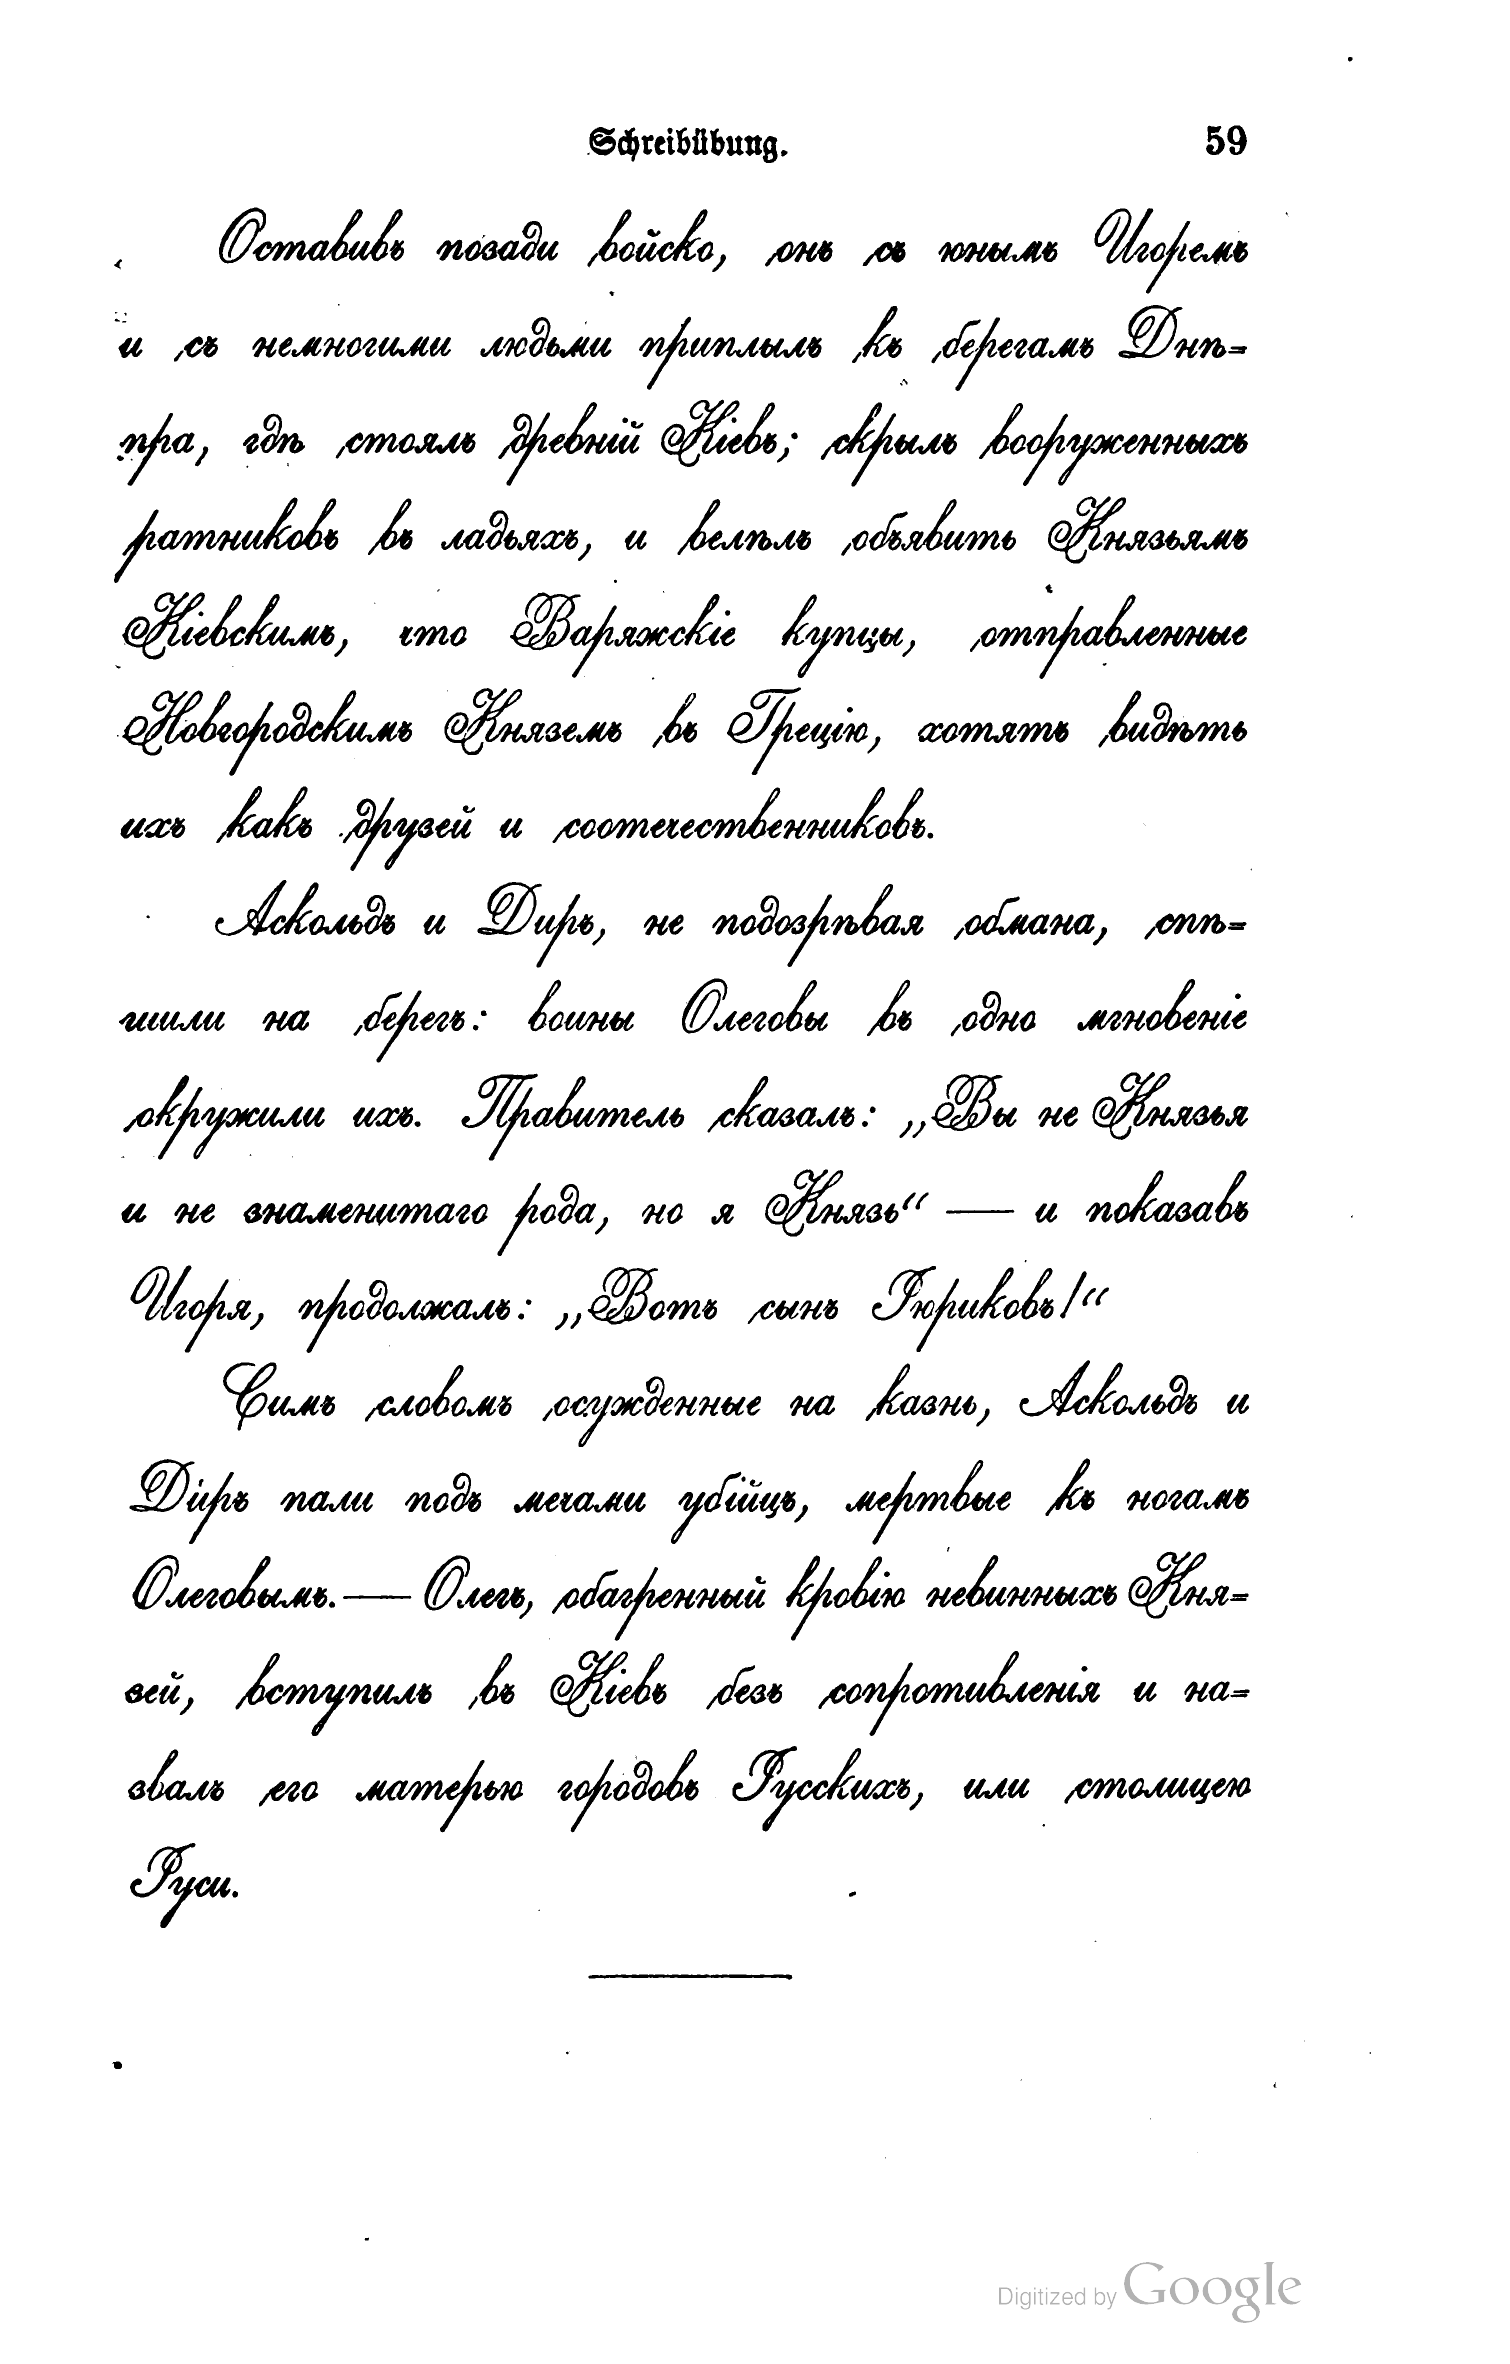 Schreibübung. 59
Оставивъ позади войско, онъ съ юнымъ Игоремъ
и съ немногими людьми приплылъ къ берегамъ Днѣ=
пра, гдѣ стоялъ древній Кіевъ; скрылъ вооруженныхъ
ратниковъ въ ладьяхъ, и велѣлъ объявить Князьямъ
Кіевскимъ, что Варяжскіе купцы, отправленные
Новгородскимъ Княземъ въ Грецію, хотятъ видѣть
ихъ какъ друзей и соотечественниковъ.
Аскольдъ и Диръ, не подозрѣвая обмана, спѣ=
шили на берегъ: воины Олеговы въ одно мгновеніе
окружили ихъ. Правитель сказалъ: „Вы не Князья
и не знаменитаго рода, но я Князь“ — и показавъ
Игоря, продолжалъ: „Вотъ сынъ Рюриковъ!“
Симъ словомъ осужденные на казнь, Аскольдъ и
Диръ пали подъ мечами убійцъ, мертвые къ ногамъ
Олеговымъ. — Олегъ, обагренный кровію невинныхъ Кня=
зей, вступилъ въ Кіевъ безъ сопротивленія и на=
звалъ его матерью городовъ Русскихъ, или столицею
Руси.
Digitized by Google